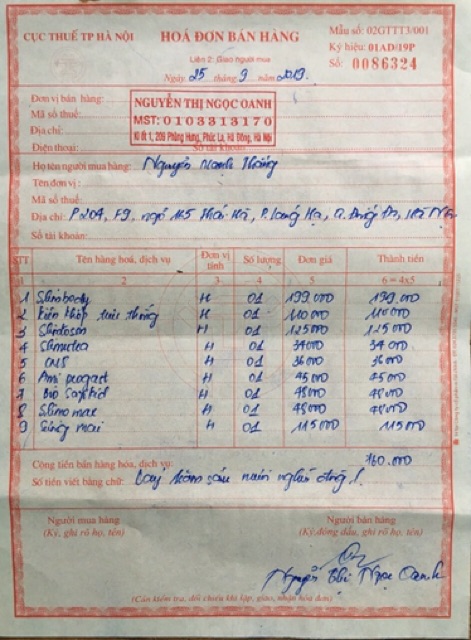 CỤC THUẾ TP HÀ NỘI
HOÁ ĐƠN BÁN HÀNG
Mẫu số: 02GTTT3/001
Liên 2: Giao người mua
Ký hiệu: 01AD/19P
Ngày 25 tháng 9 năm 2019
Số: 0086324
Đơn vị bán hàng:
Mã số thuế:
Địa chỉ:
Điện thoại: Số tài khoản
NGUYỄN THỊ NGỌC OANH
MST: 0103313170
Ki ốt 1, 209 Phùng Hưng, Phúc La, Hà Đông, Hà Nội
Họ tên người mua hàng: Nguyễn Mạnh
Tên đơn vị:
Mã số thuế:
Địa chỉ: P.204, F9, ngõ 115 Thái Hà, P. Láng Hạ, Q. Đống Đa, Hà Nội
Số tài khoản:
STT Tên hàng hoá, dịch vụ Đơn vị tính Số lượng Đơn giá Thành tiền
1 2 3 4 5 6 = 4x5
1 Slimbody H 01 199.000 199.000
2 H 01 110000 110000
3 H 01 125000 125000
4 H 01 34000 34000
5 H 01 36000 36000
6 H 01 45000 45000
7 H 01 48000 48000
8 Slimo max H 01 48000 48000
9 H 01 115000 115000
Cộng tiền bán hàng hóa, dịch vụ: 760.000
Số tiền viết bằng chữ: Bảy trăm sáu mươi nghìn đồng./.
Người mua hàng
(Ký, ghi rõ họ, tên)
Người bán hàng
(Ký, đóng dấu, ghi rõ họ, tên)
Nguyễn Thị Ngọc Oanh
(Cần kiểm tra, đối chiếu khi lập, giao, nhận hóa đơn)